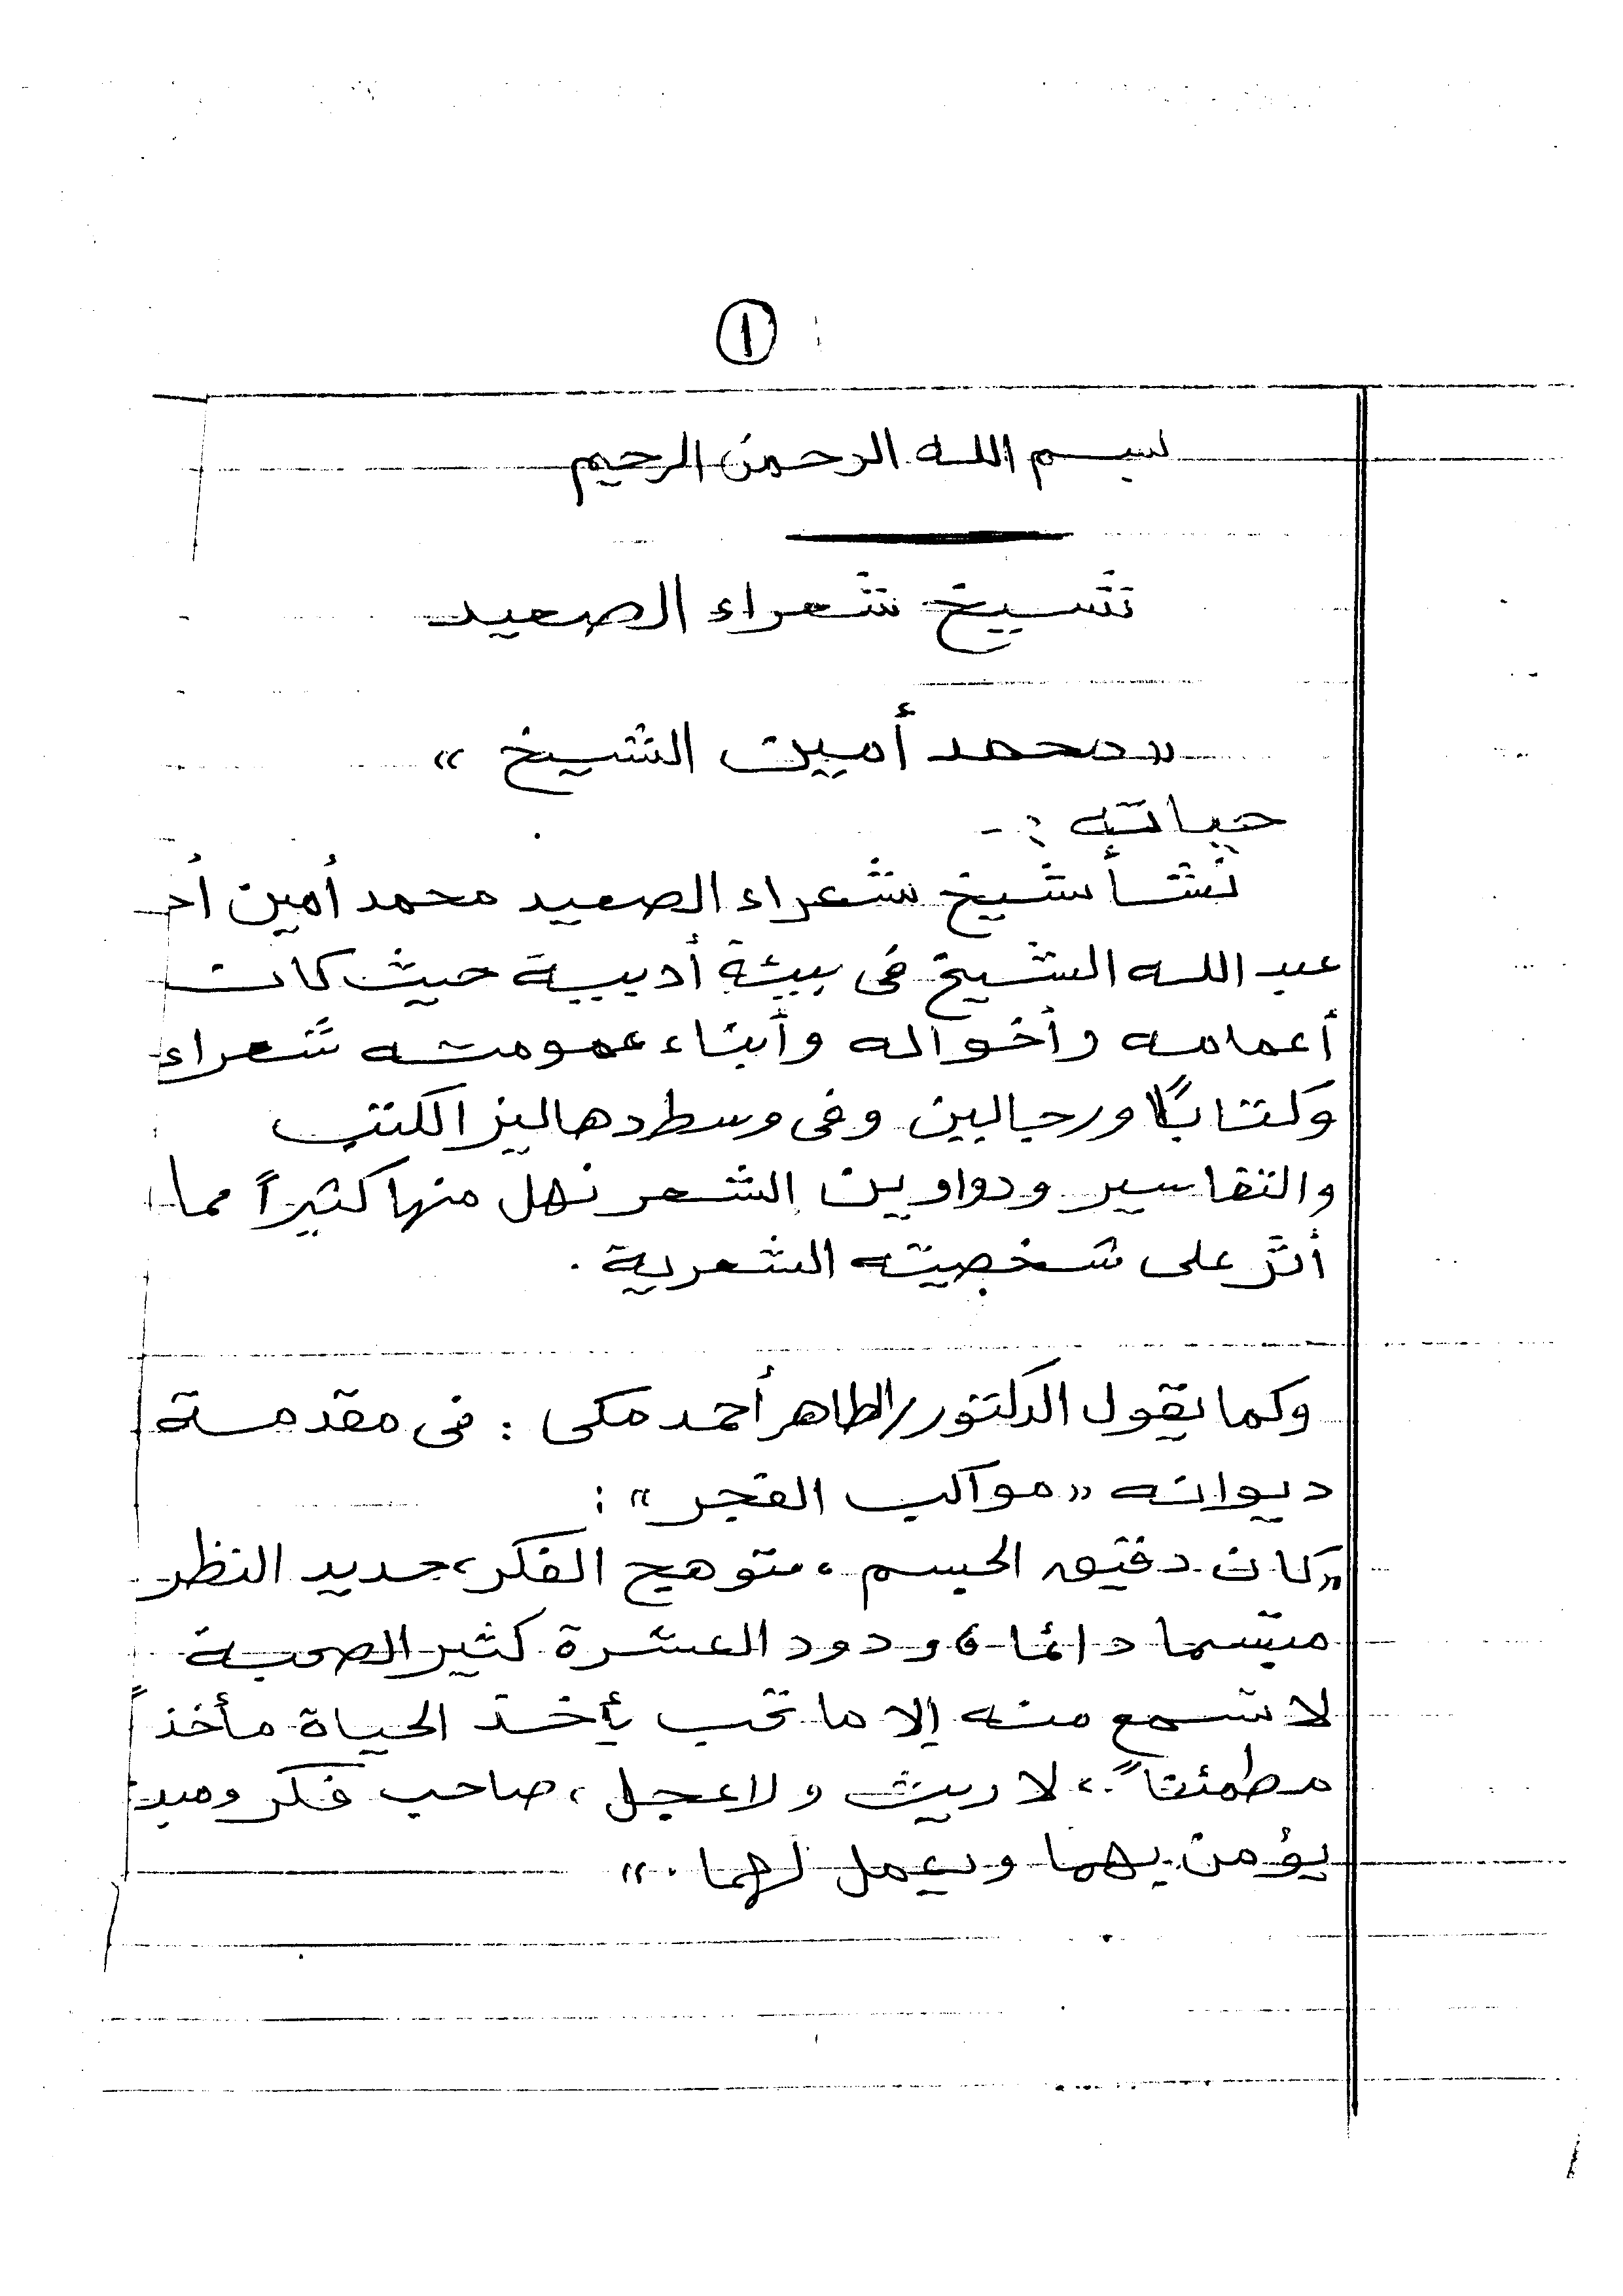 ١
بسم الله الرحمن الرحيم
شيخ شعراء الصعيد
«محمد أمين الشيخ»
حياته :-
نشأ شيخ شعراء الصعيد محمد أمين أحـ
عبد الله الشيخ فى بيئة أدبية حيث كانت
أعمامه وأخواله وأبناء عمومته شعراء
وكتابًا ورجالين وفى وسط دهاليز الكتب
والتفاسير ودواوين الشعر نهل منها كثيراً مما
أثَّر على شخصيته الشعرية .
وكما يقول الدكتور/الطاهر أحمد مكى : فى مقدمة
ديوانه «مواكب الفجر» :
«كان دقيق الجسم ، متوهج الفكر ، حديد النظر
مبتسما دائما ، ودود العشرة كثير الصحبة
لا تسمع منه إلا ما تحب يأخذ الحياة مأخذاً
مطمئناً ، لا ريث ولا عجل ، صاحب فكر ومبد
يؤمن بهما ويعمل لهما . »